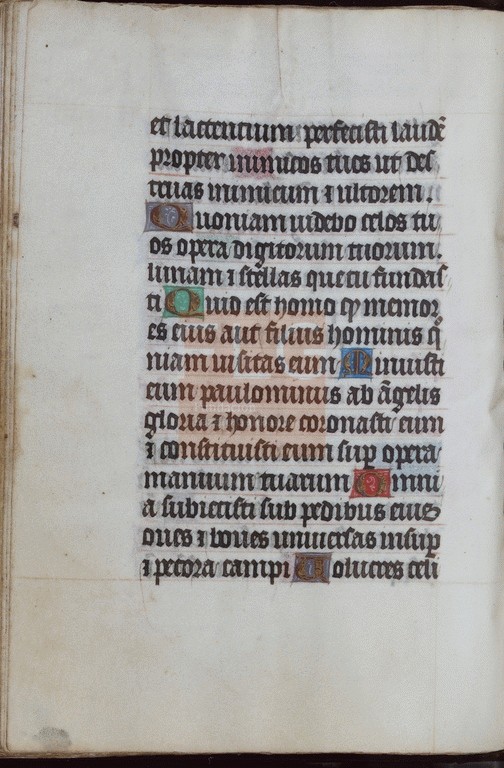 et lactentium perfecisti laudē
propter inimicos tuos ut des
truas inimicum ⁊ ultorem.
Quoniam uidebo celos tu
os opera digitorum tuorum.
lunam ⁊ stellas que tu fundas
ti Quid est homo qꝫ memor
es eius aut filius hominis qͦ
niam uisitas eum Minuisti
eum paulominus ab āgelis
gloria ⁊ honore coronasti eum
⁊ constituisti eum suꝑ opera
manuum tuarum Omni
a subiecisti sub pedibus eius
oues ⁊ boues uniuersas insuꝑ
⁊ pecora campi Uolucres celi